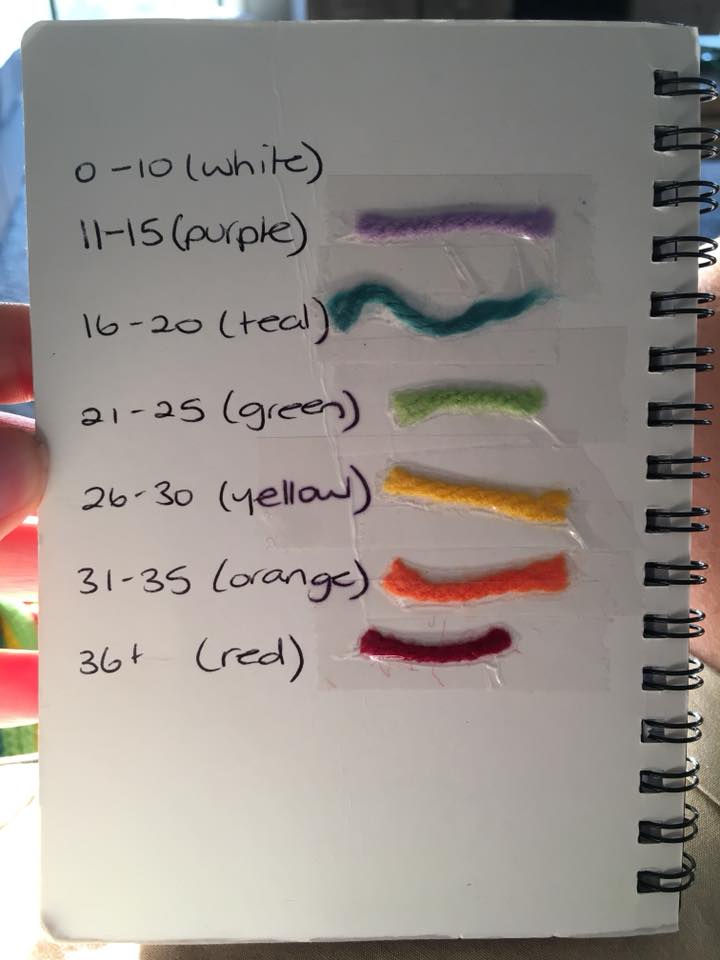 0-10 (white)
11-15 (purple)
16-20 (teal)
21-25 (green)
26-30 (yellow)
31-35 (orange)
36+ (red)